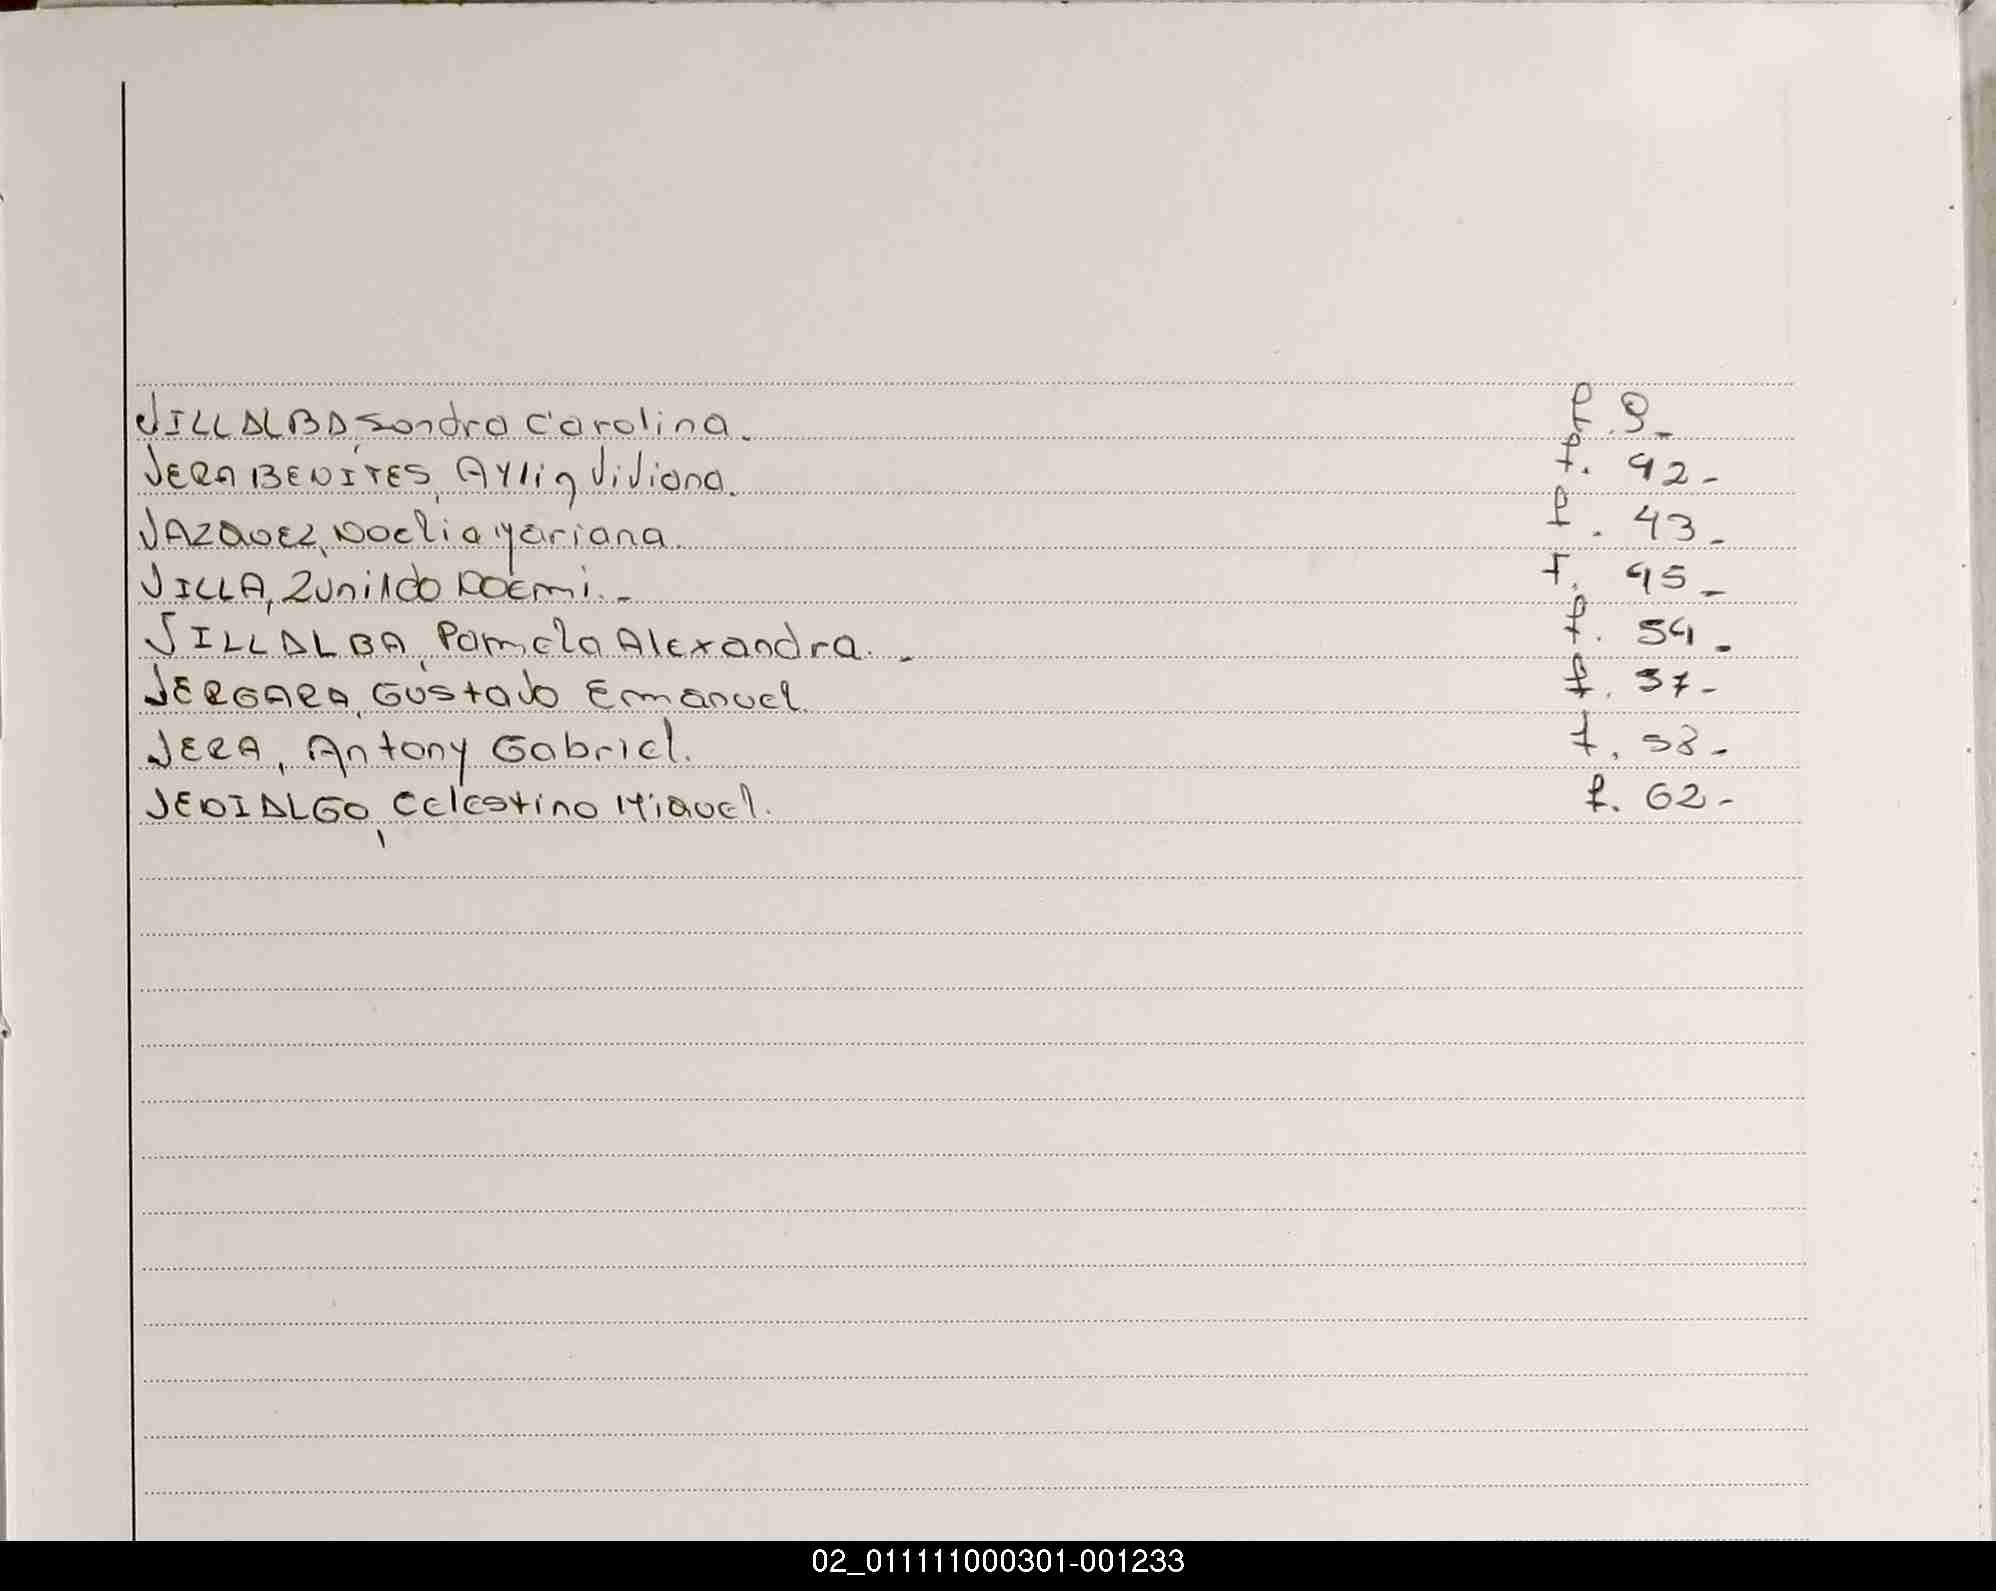 VILLALBA, Sandra Carolina. f. 9-
VERA BENITES, Aylin Viviana. f. 42-
VAZQUEZ, Noelia Mariana. f. 43-
VILLA, Zunilda Noemi.- f. 45-
VILLALBA, Pamela Alexandra.- f. 54-
VERGARA, Gustavo Emanuel. f. 57-
VERA, Antony Gabriel. f. 58-
VEDIALGO, Celestino Miguel. f. 62-
02_011111000301-001233